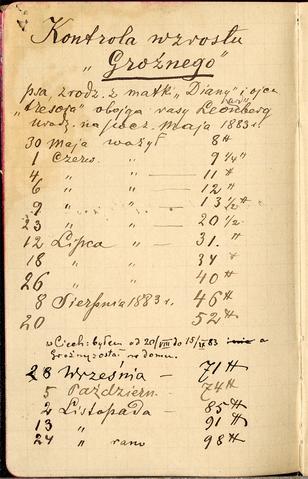 Kontrola wzrostu
„Groźnego"
psa zrodz. z matk „Diany" i ojca
„ obojga rasy Leonberg
urodz. na pocz. maja 1883 r.
30 maja ważył 8 ℔
1 Czerw. „ 9 1/4 ℔
4 „ „ — 11 ℔
6 „ „ — 12 ℔
9 „ „ — 13 1/2 ℔
23 „ „ — 20 1/2
12 Lipca „ — 31. ℔
18 „ „ — 34 ℔
26 „ — 40 ℔
8 Sierpnia 1883 r. 46 ℔
20 52 ℔
w Ciech: byłem od 20/VIII do 15/ 83 a
Groźny został w domu.
28 Września — 71 ℔
5 Październ. — 74 ℔
2 Listopada — 85 ℔
13 „ — 91 ℔
24 „ rano 98 ℔